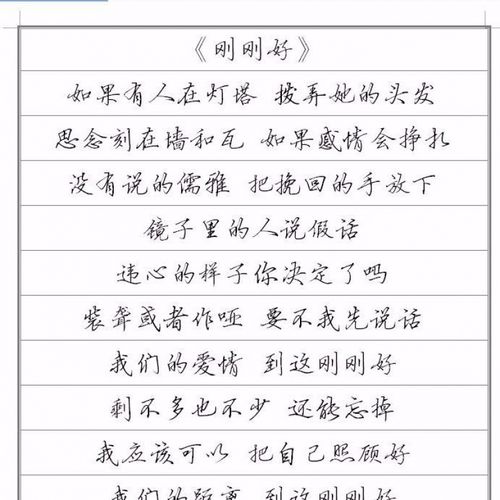 《刚刚好》
如果有人在灯塔 拨弄她的头发
思念刻在墙和瓦 如果感情会挣扎
没有说的儒雅 把挽回的手放下
镜子里的人说假话
违心的样子你决定了吗
装聋或者作哑 要不我先说话
我们的爱情 到这刚刚好
剩不多也不少 还能忘掉
我应该可以 把自己照顾好
我们的距离 到这刚刚好